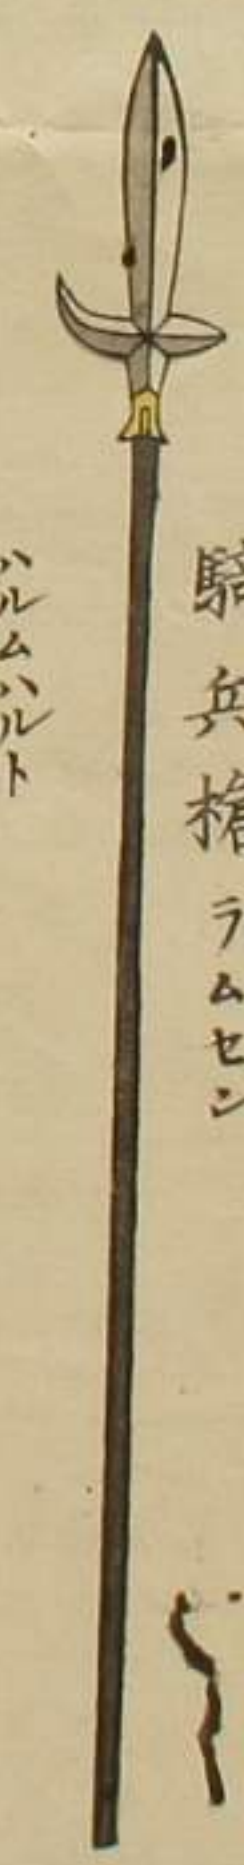 騎兵槍 ラムセン
ハルムハルト